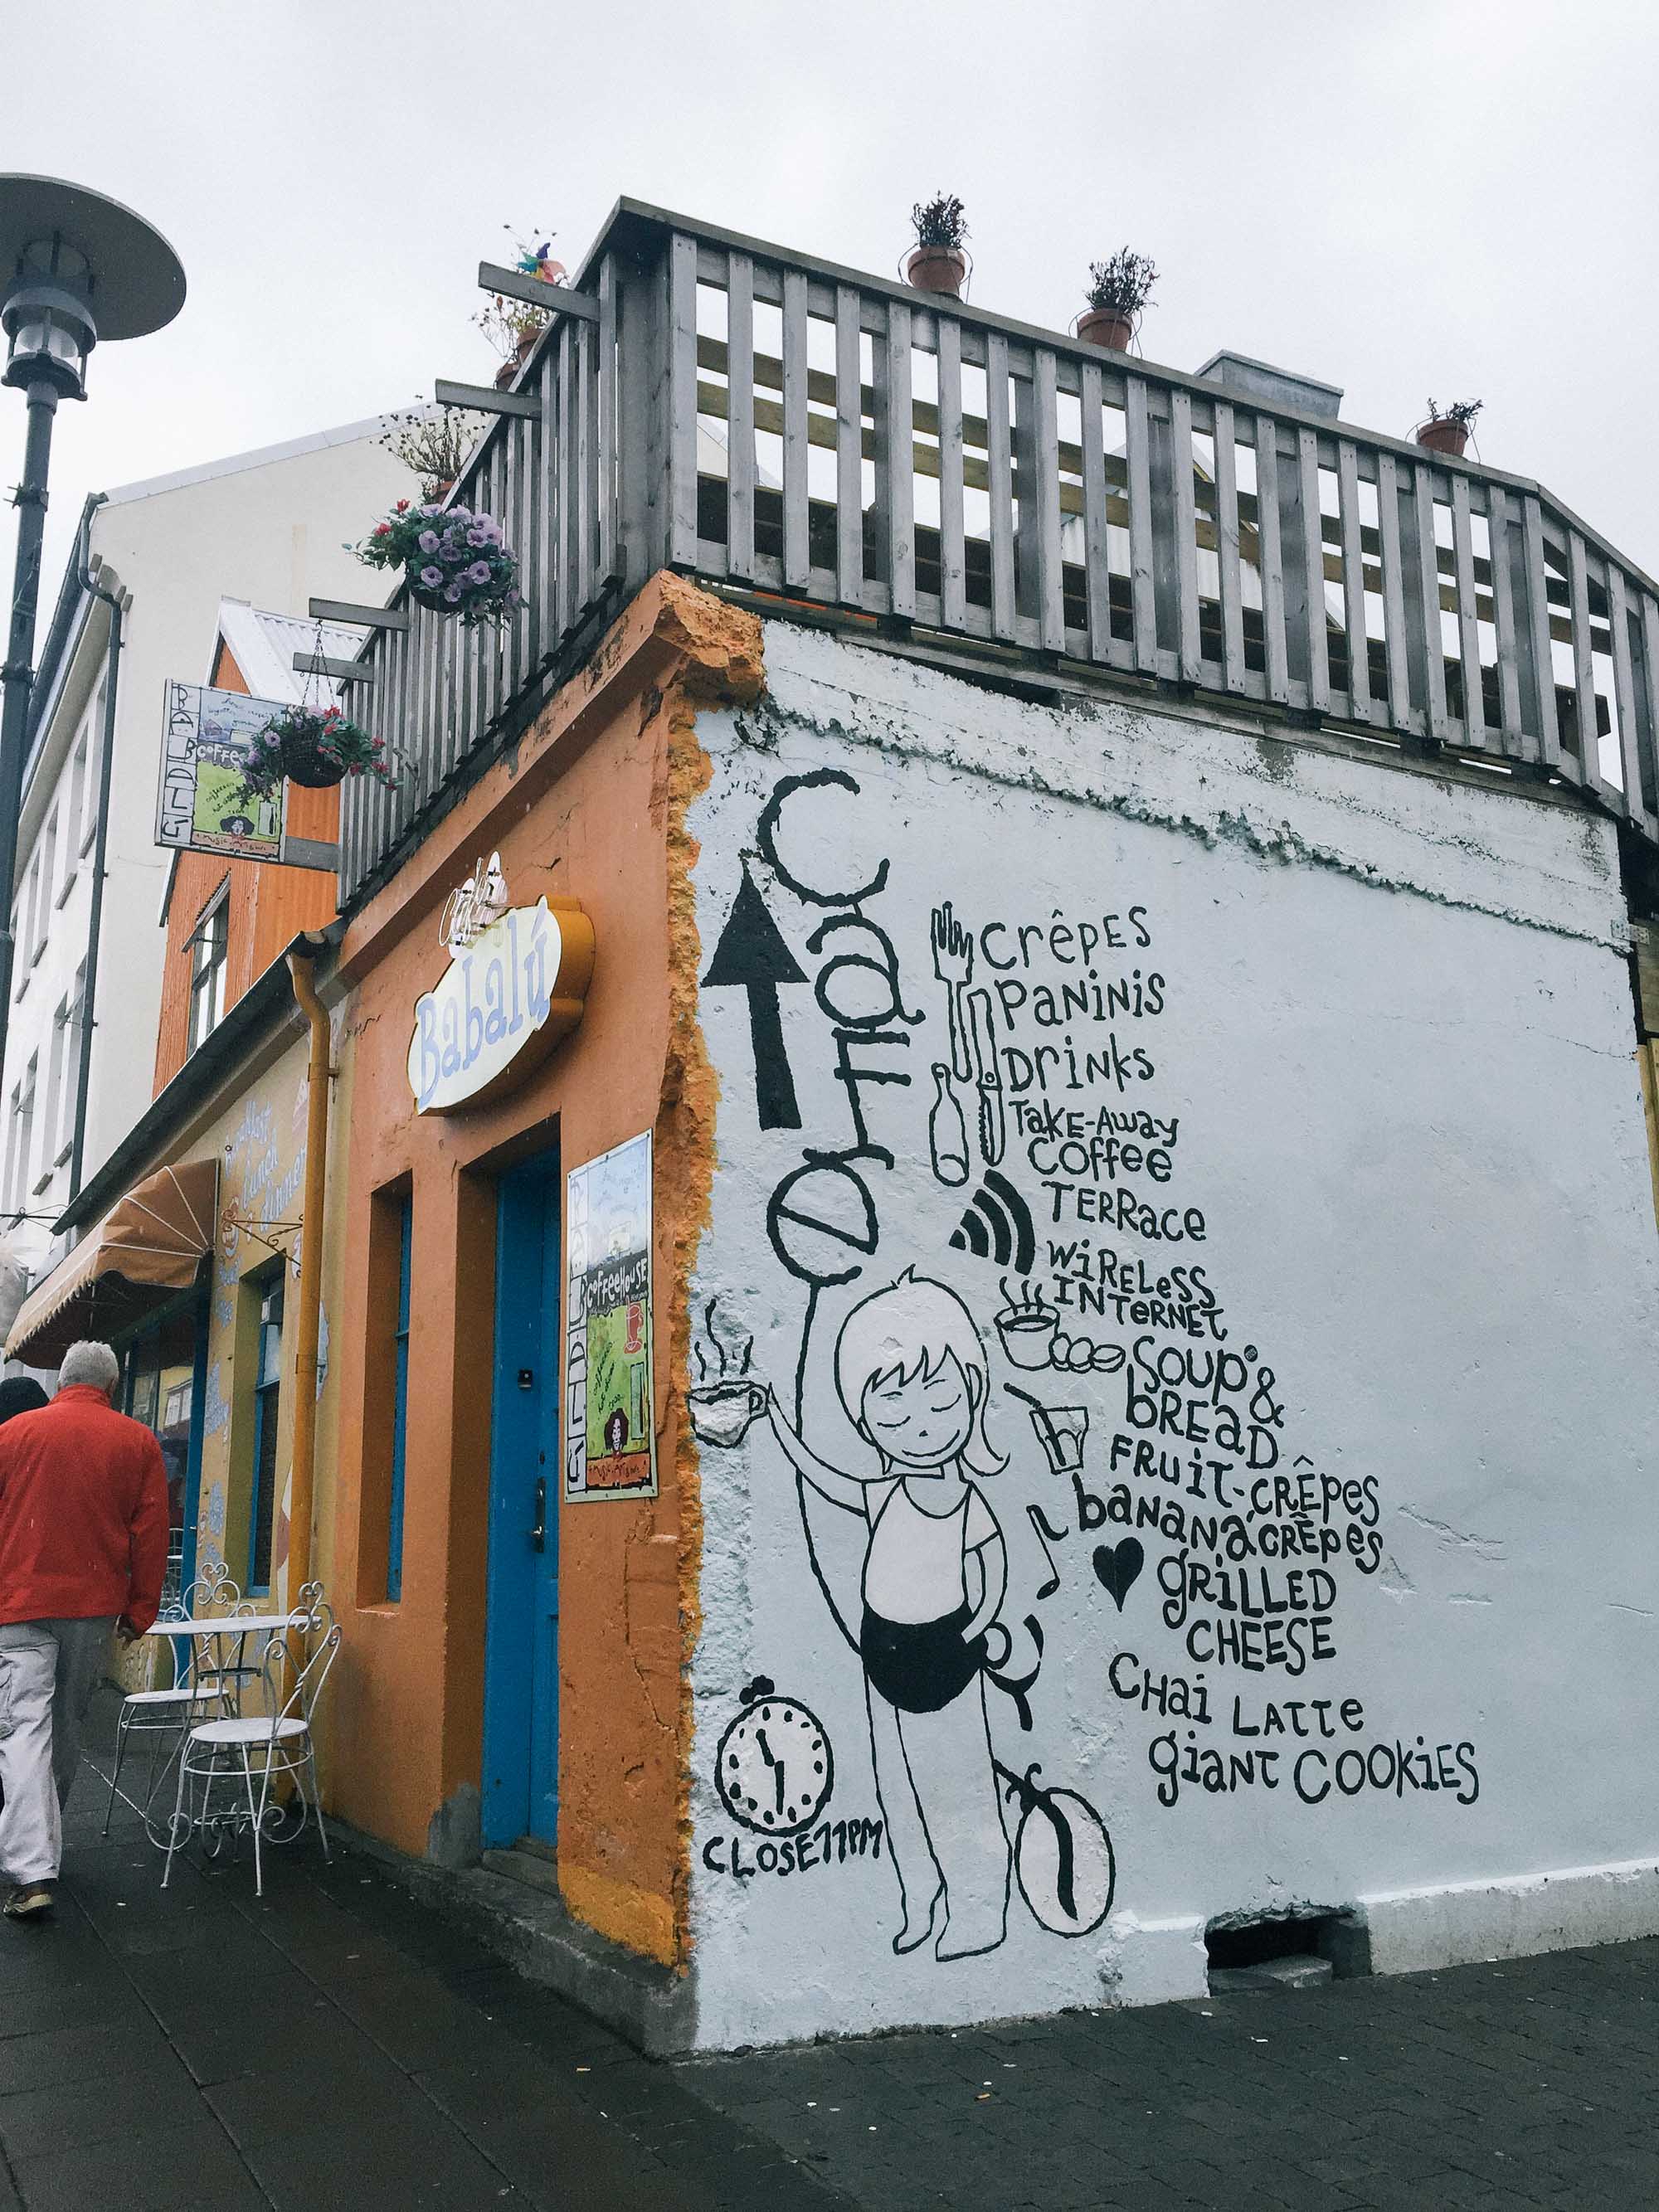 BABALÚ
COFFEE
Café
Babalú
BABALÚ
COFFEEHOUSE
Café
Crêpes
Paninis
Drinks
Take-Away
Coffee
Terrace
Wireless
Internet
Soup &
Bread
Fruit-Crêpes
Banana Crêpes
Grilled
Cheese
Chai Latte
Giant Cookies
CLOSE 11PM